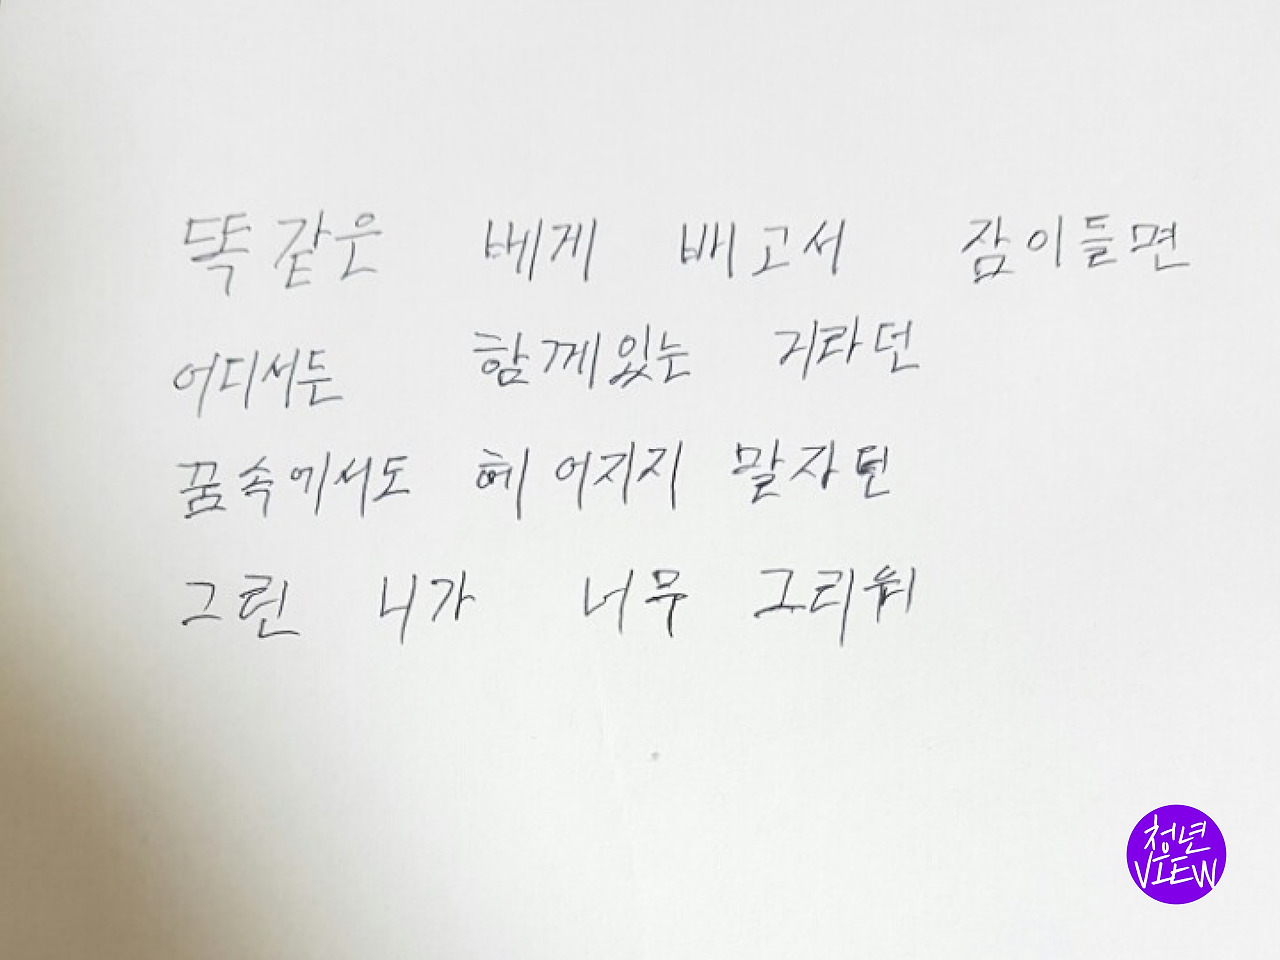 똑같은 베게 배고서 잠이들면
어디서든 함께있는 거라던
꿈속에서도 헤어지지 말자던
그런 니가 너무 그리워
청년
VIEW